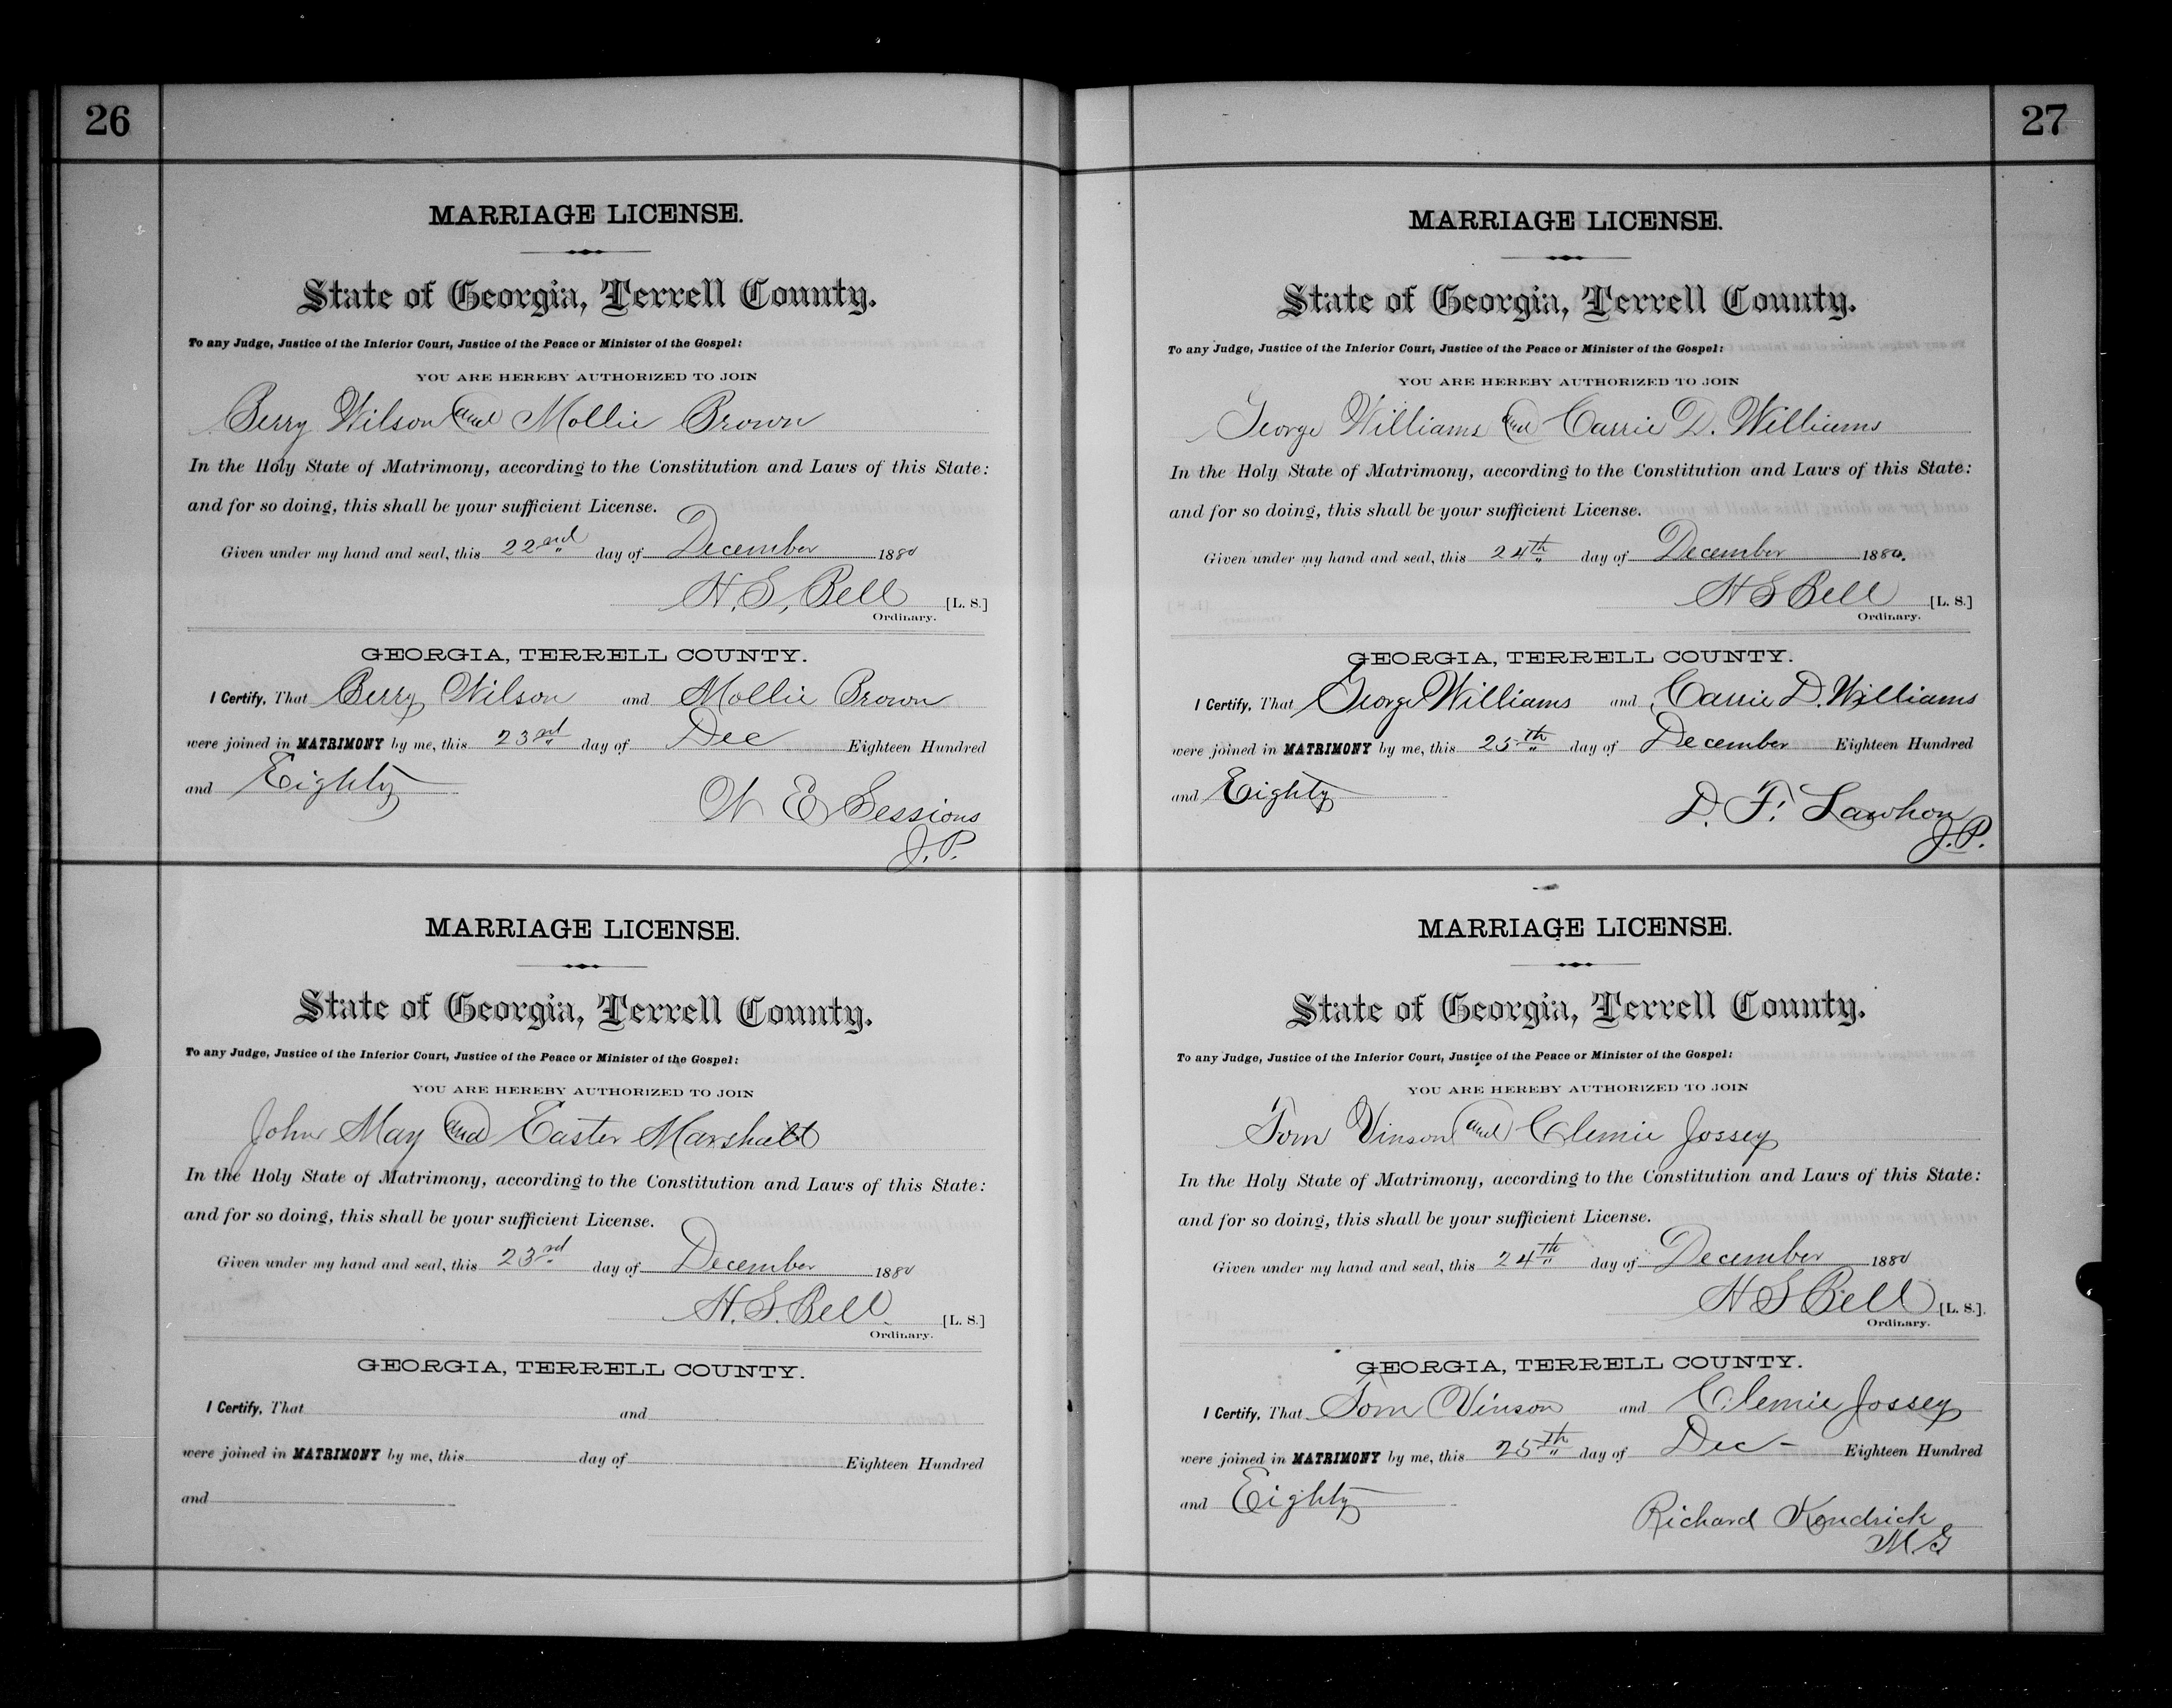 26
MARRIAGE LICENSE.
State of Georgia, Terrell County.
To any Judge, Justice of the Inferior Court, Justice of the Peace or Minister of the Gospel:
YOU ARE HEREBY AUTHORIZED TO JOIN
Berry Wilson and Mollie Brown
In the Holy State of Matrimony, according to the Constitution and Laws of this State:
and for so doing, this shall be your sufficient License.
Given under my hand and seal, this 22nd day of December 1880
H. S. Bell [L. S.]
Ordinary.
GEORGIA, TERRELL COUNTY.
I Certify, That Berry Wilson and Mollie Brown
were joined in MATRIMONY by me, this 23rd day of Dec Eighteen Hundred
and Eighty
W E Sessions
J. P.
MARRIAGE LICENSE.
State of Georgia, Terrell County.
To any Judge, Justice of the Inferior Court, Justice of the Peace or Minister of the Gospel:
YOU ARE HEREBY AUTHORIZED TO JOIN
John May and Easter Marshall
In the Holy State of Matrimony, according to the Constitution and Laws of this State:
and for so doing, this shall be your sufficient License.
Given under my hand and seal, this 23rd day of December 1880
H. S. Bell [L. S.]
Ordinary.
GEORGIA, TERRELL COUNTY.
I Certify, That and
were joined in MATRIMONY by me, this day of Eighteen Hundred
and
27
MARRIAGE LICENSE.
State of Georgia, Terrell County.
To any Judge, Justice of the Inferior Court, Justice of the Peace or Minister of the Gospel:
YOU ARE HEREBY AUTHORIZED TO JOIN
George Williams and Carrie D. Williams
In the Holy State of Matrimony, according to the Constitution and Laws of this State:
and for so doing, this shall be your sufficient License.
Given under my hand and seal, this 24th day of December 1880.
H S Bell [L. S.]
Ordinary.
GEORGIA, TERRELL COUNTY.
I Certify, That George Williams and Carrie D. Williams
were joined in MATRIMONY by me, this 25th day of December Eighteen Hundred
and Eighty
D. F. Lawhon
J. P.
MARRIAGE LICENSE.
State of Georgia, Terrell County.
To any Judge, Justice of the Inferior Court, Justice of the Peace or Minister of the Gospel:
YOU ARE HEREBY AUTHORIZED TO JOIN
Tom Vinson and Clemie Jossey
In the Holy State of Matrimony, according to the Constitution and Laws of this State:
and for so doing, this shall be your sufficient License.
Given under my hand and seal, this 24th day of December 1880
H S Bell [L. S.].
Ordinary.
GEORGIA, TERRELL COUNTY.
I Certify, That Tom Vinson and Clemie Jossey
were joined in MATRIMONY by me, this 25th day of Dec - Eighteen Hundred
and Eighty
Richard Kendrick
M G